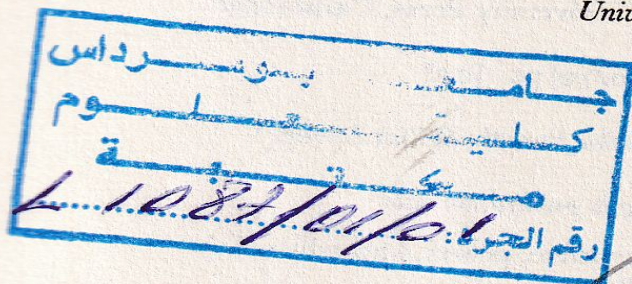 Univ
جامعة بومرداس
كلية العلوم
مكتبة
رقم الجرد: L 1087/01/01